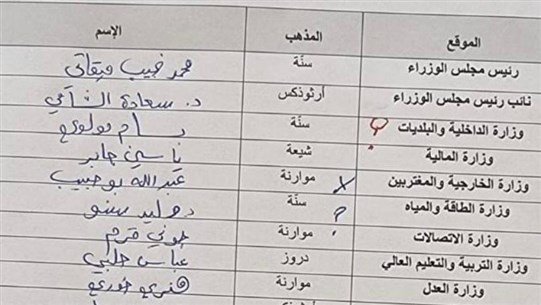 الموقع المذهب الإسم
رئيس مجلس الوزراء سنّة محمد نجيب ميقاتي
نائب رئيس مجلس الوزراء أرثوذكس د. سعادة الشامي
وزارة الداخلية والبلديات ؟ سنّة بسام مولوي
وزارة المالية شيعة ياسين جابر
وزارة الخارجية والمغتربين x موارنة عبدالله بوحبيب
وزارة الطاقة والمياه ؟ سنّة د. وليد سنو
وزارة الاتصالات موارنة جوني قرم
وزارة التربية والتعليم العالي دروز عباس حلبي
وزارة العدل موارنة هنري خوري